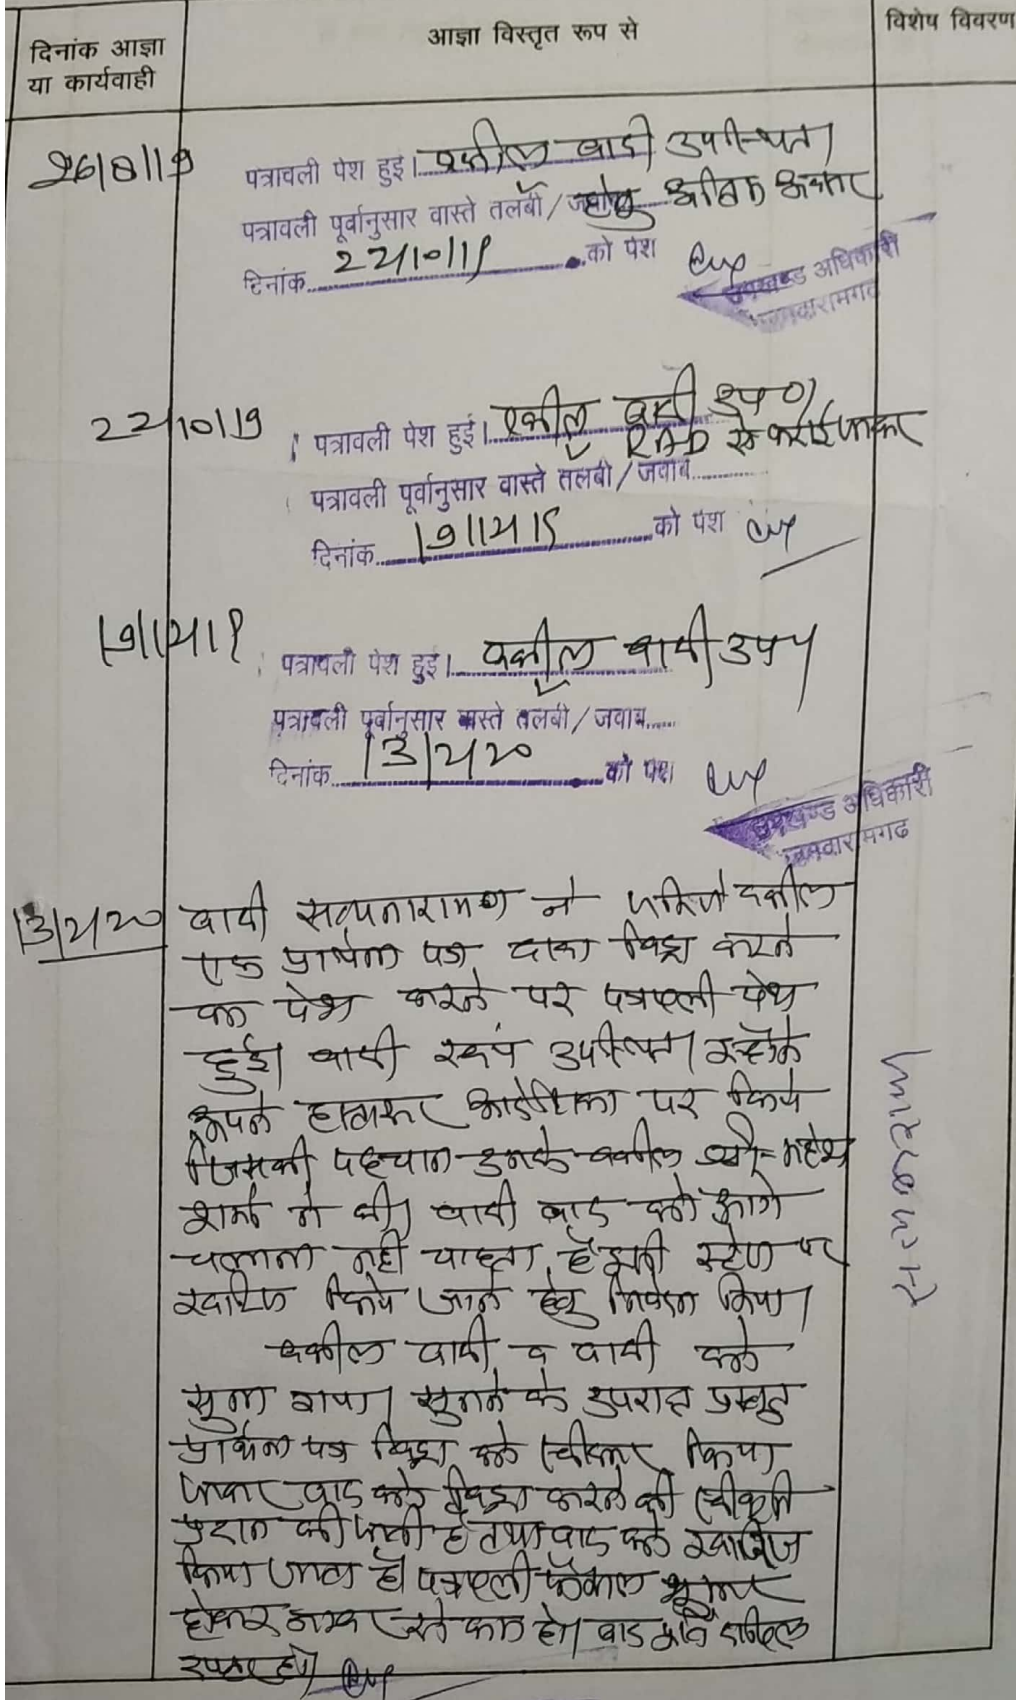 दिनांक आज्ञा
या कार्यवाही
आज्ञा विस्तृत रूप से
विशेष विवरण
26/8/19
पत्रावली पेश हुई। वकील वादी उपस्थित।
पत्रावली पूर्वानुसार वास्ते तलबी/ हेतु अंतिम अवसर
दिनांक 22/10/19 को पेश
उपखण्ड अधिकारी
जमवारामगढ
22/10/19
पत्रावली पेश हुई। वकील वादी उप०
RAD से कराई जाकर
पत्रावली पूर्वानुसार वास्ते तलबी/जवाब
दिनांक 19/12/19 को पेश
19/12/19
पत्रावली पेश हुई। वकील वादी उप०
पत्रावली पूर्वानुसार वास्ते तलबी/जवाब
दिनांक 13/2/20 को पेश
उपखण्ड अधिकारी
जमवारामगढ
13/2/20 वादी सत्यनारायण ने जरिये वकील
एक प्रार्थना पत्र दावा विड्रा करने
का पेश करने पर पत्रावली पेश
हुई। वादी स्वयं उपस्थित। उन्होंने
अपने हस्ताक्षर आदेशिका पर किये
जिसकी पहचान उनके वकील श्री महेश
शर्मा ने की। वादी वाद को आगे
चलाना नहीं चाहता है इसी स्टेज पर
खारिज किये जाने हेतु निवेदन किया।
वकील वादी व वादी को
सुना गया। सुनने के उपरान्त प्रस्तुत
प्रार्थना पत्र विड्रा को स्वीकार किया
जाकर वाद को विड्रा करने की स्वीकृति
प्रदान की जाती है तथा वाद को खारिज
किया जाता है। पत्रावली फैसल शुमार
होकर नम्बर से कम हो। वाद दाखिल
दफ्तर हो।
सत्यनारायण